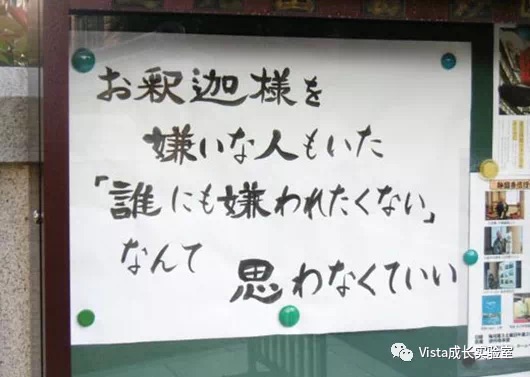 お釈迦様を
嫌いな人もいた
「誰にも嫌われたくない」
なんて
思わなくていい
Vista成长实验室